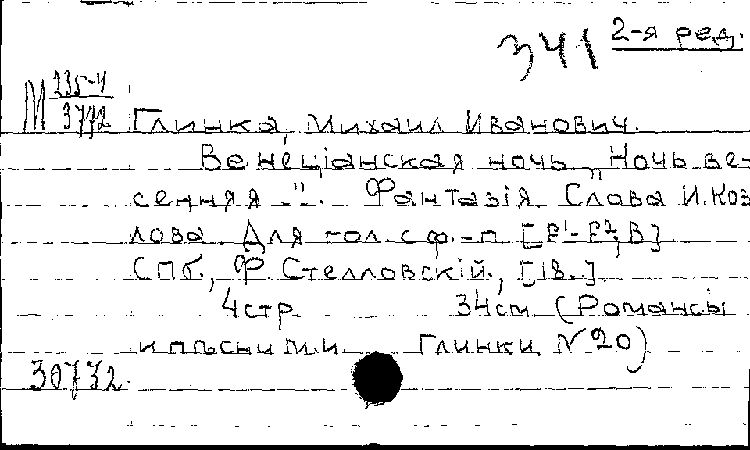 341 2-я ред.
М 235-4
3772
Глинка, Михаил Иванович.
Венеціанская ночь „Ночь ве-
сенняя ..". Фантазія. Слова И. Коз
лова. Для гол. с ф.-п.
СПб., Ф. Стелловскій., [18..]
4 стр. 34 см. (Романсы
и пѣсни М.И. Глинки. № 20)
30732.